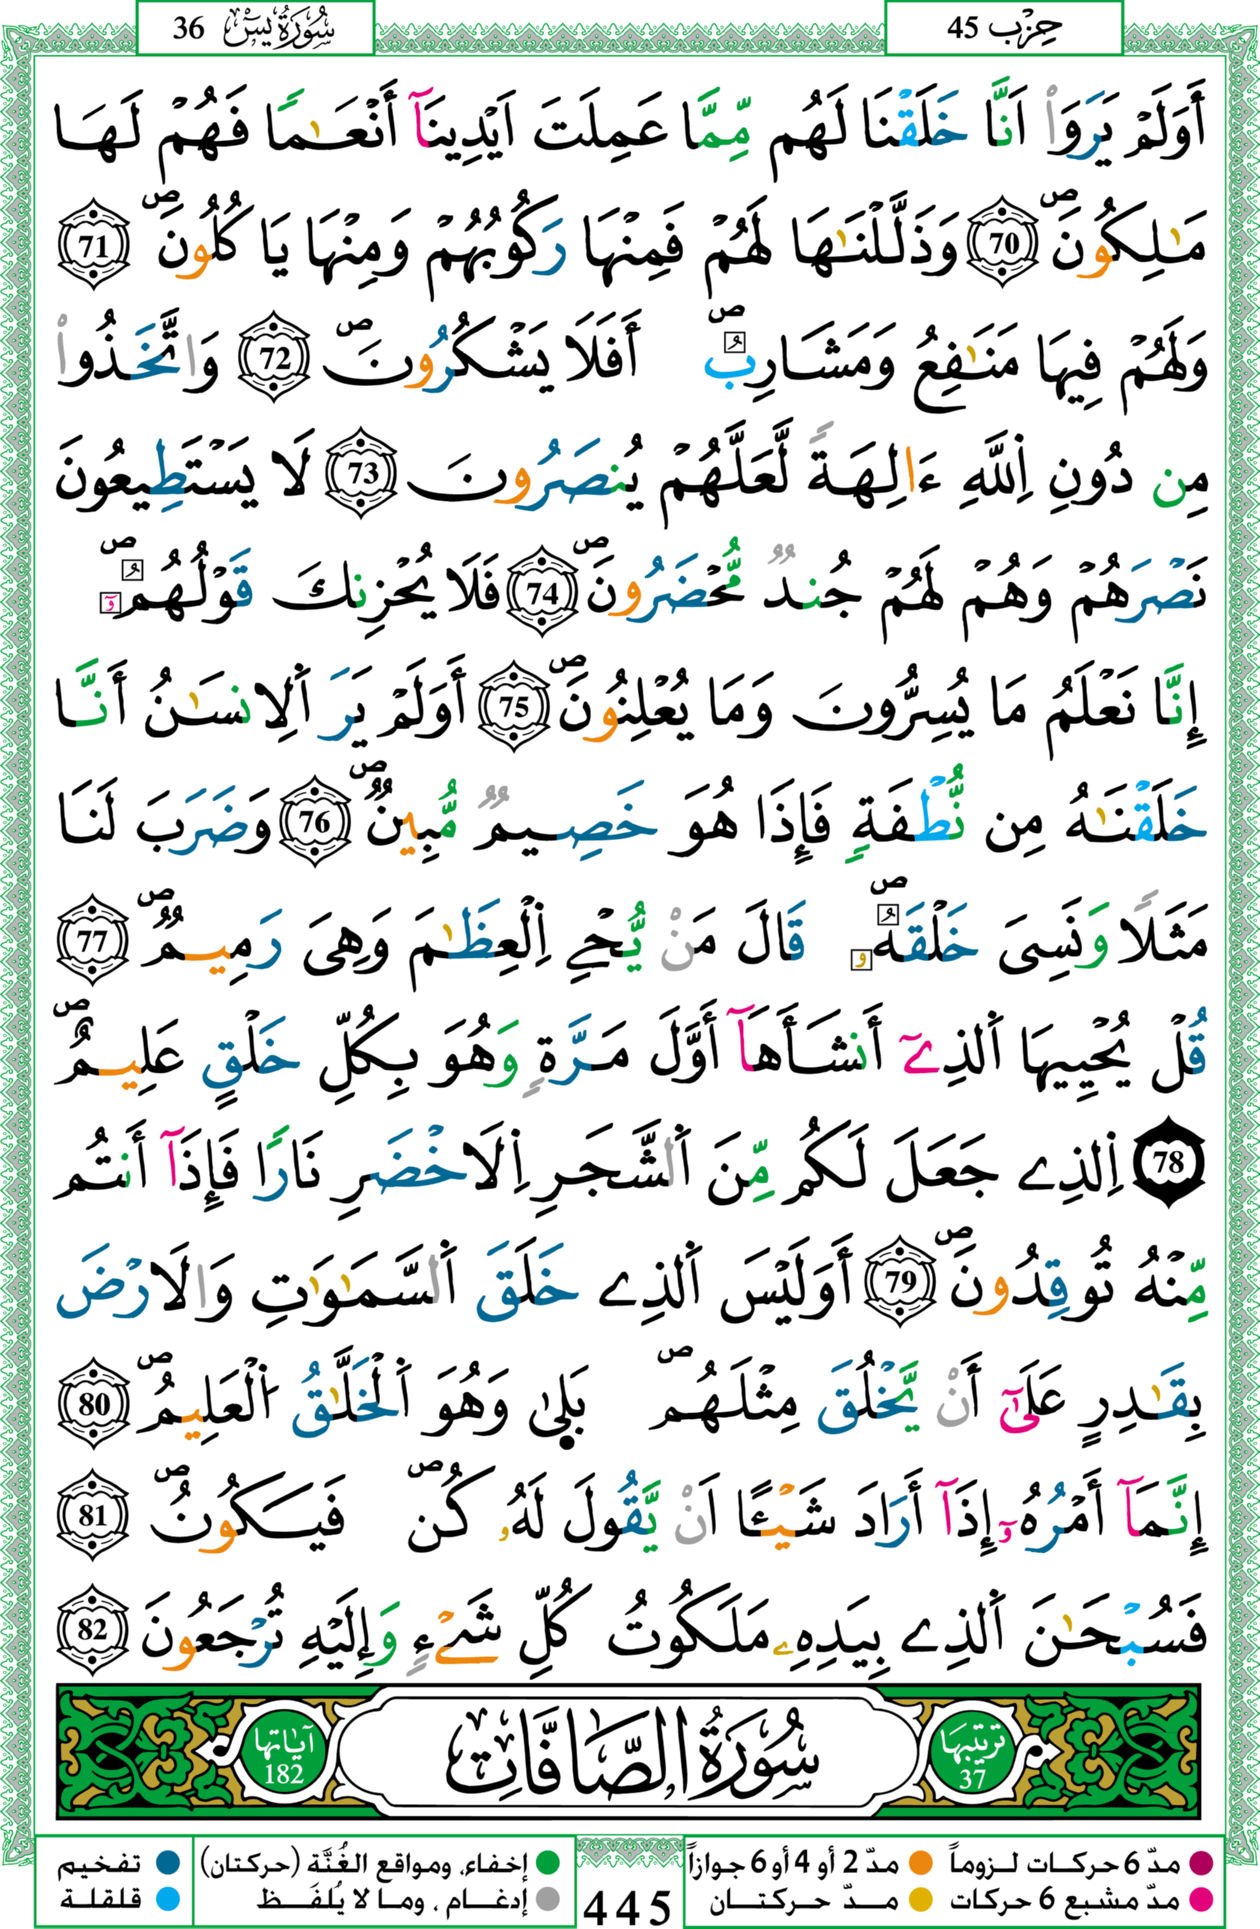 حِزْب 45
سُورَةُ يسٓ 36
أَوَلَمْ يَرَوَاْ اَنَّا خَلَقْنَا لَهُم مِّمَّا عَمِلَتَ اَيْدِينَآ أَنْعَٰماً فَهُمْ لَهَا
مَٰلِكُونَۖ 70 وَذَلَّلْنَٰهَا لَهُمْ فَمِنْهَا رَكُوبُهُمْ وَمِنْهَا يَاكُلُونَۖ 71
وَلَهُمْ فِيهَا مَنَٰفِعُ وَمَشَارِبُۖ أَفَلَا يَشْكُرُونَۖ 72 وَاتَّخَذُواْ
مِن دُونِ اِ۬للَّهِ ءَالِهَةً لَّعَلَّهُمْ يُنصَرُونَ 73 لَا يَسْتَطِيعُونَ
نَصْرَهُمْ وَهُمْ لَهُمْ جُندٌ مُّحْضَرُونَۖ 74 فَلَا يُحْزِنكَ قَوْلُهُمُۥٓۖ
إِنَّا نَعْلَمُ مَا يُسِرُّونَ وَمَا يُعْلِنُونَۖ 75 أَوَلَمْ يَرَ اَ۬لِانسَٰنُ أَنَّا
خَلَقْنَٰهُ مِن نُّطْفَةٍ فَإِذَا هُوَ خَصِيمٌ مُّبِينٌۖ 76 وَضَرَبَ لَنَا
مَثَلًا وَنَسِيَ خَلْقَهُۥۖ قَالَ مَنْ يُّحْيِ اِ۬لْعِظَٰمَ وَهِيَ رَمِيمٌۖ 77
قُلْ يُحْيِيهَا اَ۬لذِےٓ أَنشَأَهَآ أَوَّلَ مَرَّةٍ وَهُوَ بِكُلِّ خَلْقٍ عَلِيمٌۖ
78 اِ۬لذِے جَعَلَ لَكُم مِّنَ اَ۬لشَّجَرِ اِ۬لَاخْضَرِ نَارًا فَإِذَآ أَنتُم
مِّنْهُ تُوقِدُونَۖ 79 أَوَلَيْسَ اَ۬لذِے خَلَقَ اَ۬لسَّمَٰوَٰتِ وَالَارْضَ
بِقَٰدِرٍ عَلَيٰٓ أَنْ يَّخْلُقَ مِثْلَهُمۖ بَلٜيٰ وَهُوَ اَ۬لْخَلَّٰقُ اُ۬لْعَلِيمُۖ 80
إِنَّمَآ أَمْرُهُۥٓ إِذَآ أَرَادَ شَيْـًٔا اَنْ يَّقُولَ لَهُۥ كُنۖ فَيَكُونُۖ 81
فَسُبْحَٰنَ اَ۬لذِے بِيَدِهِۦ مَلَكُوتُ كُلِّ شَےْءٍ وَإِلَيْهِ تُرْجَعُونَ 82
ترتيبها 37
سُورَةُ الصَّافَّاتِ
آياتها 182
مدّ 6 حركات لـزوماً
مدّ 2 أو 4 أو 6 جوازاً
مدّ مشبع 6 حركات
مـدّ حركتـان
445
إخفاء، ومواقع الغُنَّة (حركتان)
إدغـام ، ومـا لا يُلفَـظ
تفخيم
قلقلة